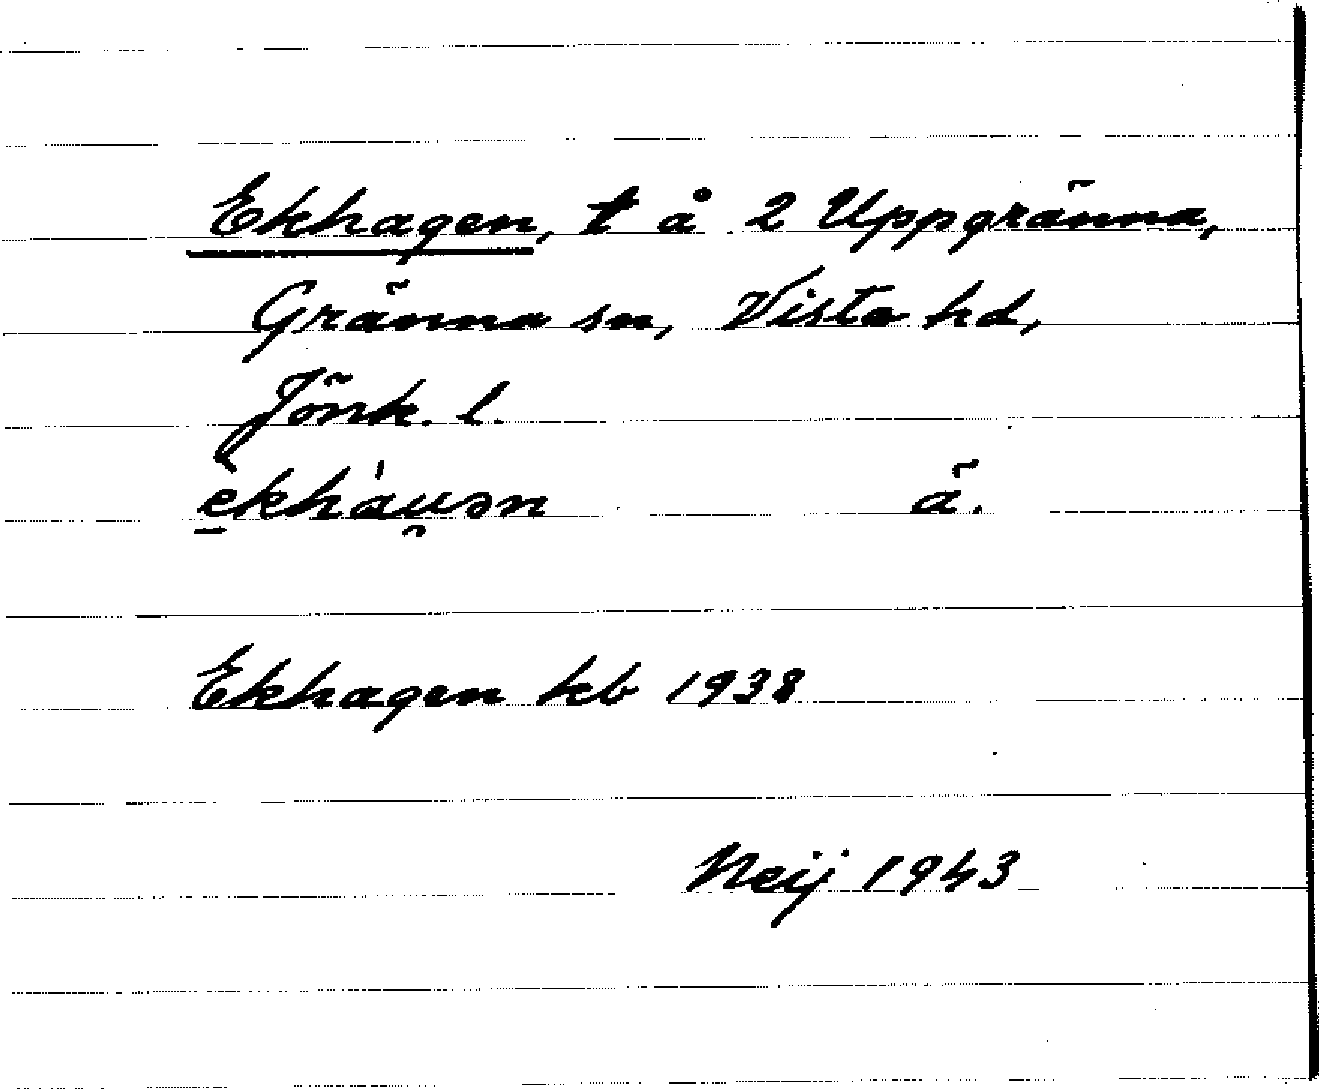 Ekhagen, t å 2 Uppgränna,
Gränna sn, Vista hd,
Jönk. l.
è̱khàu̯ən ä.
Ekhagen kb 1938
Neij 1943